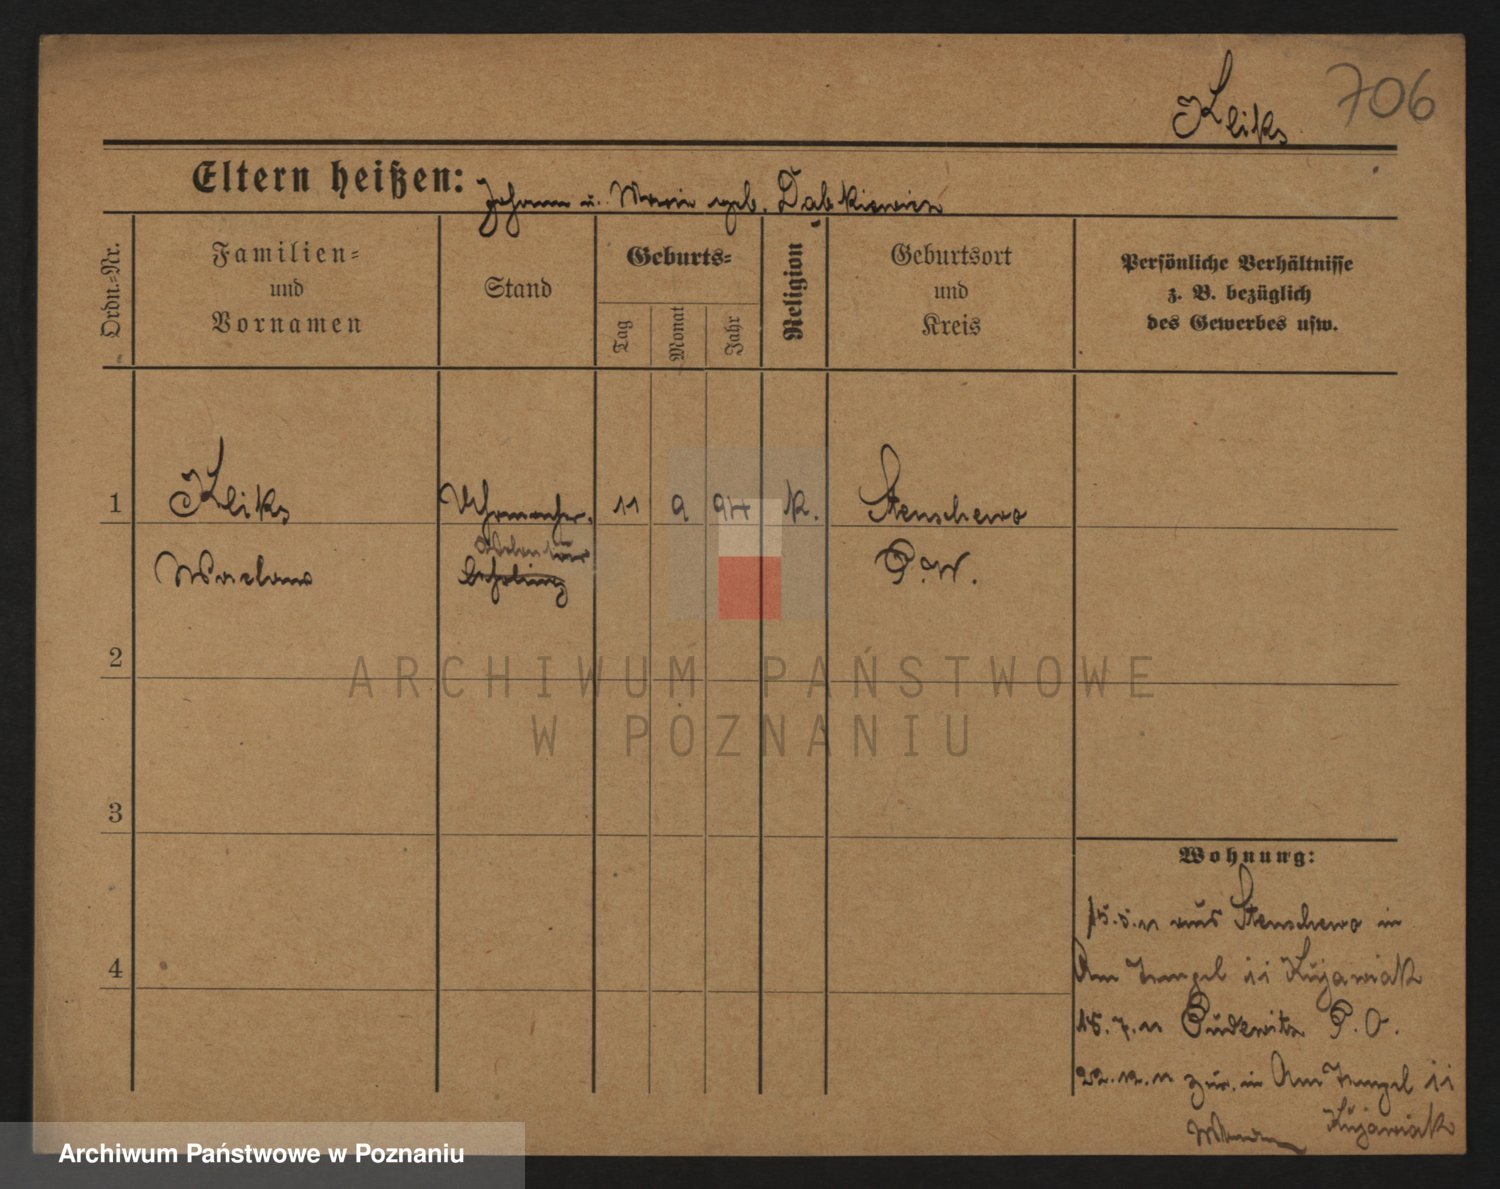 706
Kliks
Eltern heißen: Johann u. Marie geb. Dabkiewicz
Ordn.=Nr.
Familien=
und
Vornamen
Stand
Geburts=
Tag
Monat
Jahr
Religion
Geburtsort
und
Kreis
Persönliche Verhältnisse
z. B. bezüglich
des Gewerbes usw.
1
Kliks
Uhrmacher
11
9
94
k.
Stenschewo
Waclaw
Lehrling
P. W.
2
ARCHIWUM PAŃSTWOWE
W POZNANIU
3
Wohnung:
15.5.11 aus Stenschewo in
4
Am Tempel 11 Kujawiak
15.7.11 Pudewitz P. O.
22.12.11 zur. in Am Tempel 11
Kujawiak
Archiwum Państwowe w Poznaniu